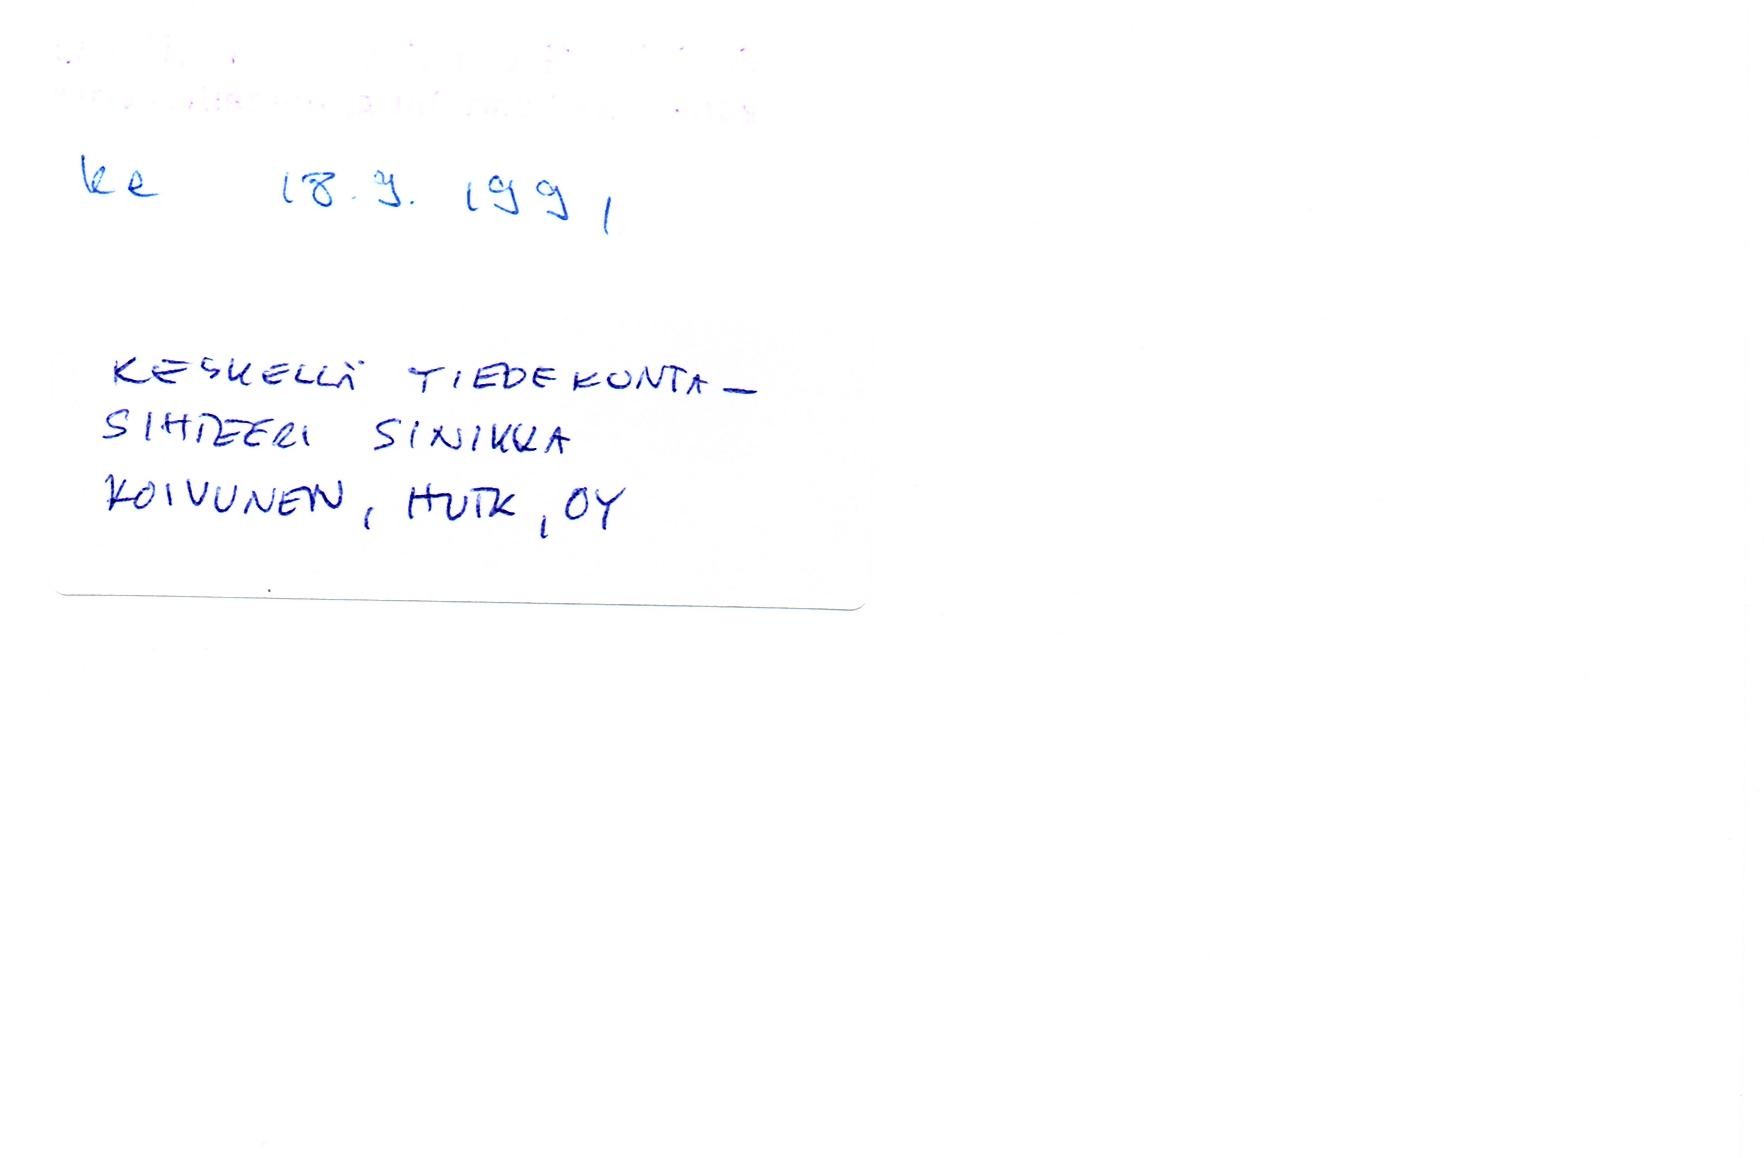 ke 18.9.1991
KESKELLÄ TIEDEKUNTA-
SIHTEERI SINIKKA
KOIVUNEN, HUTK, OY